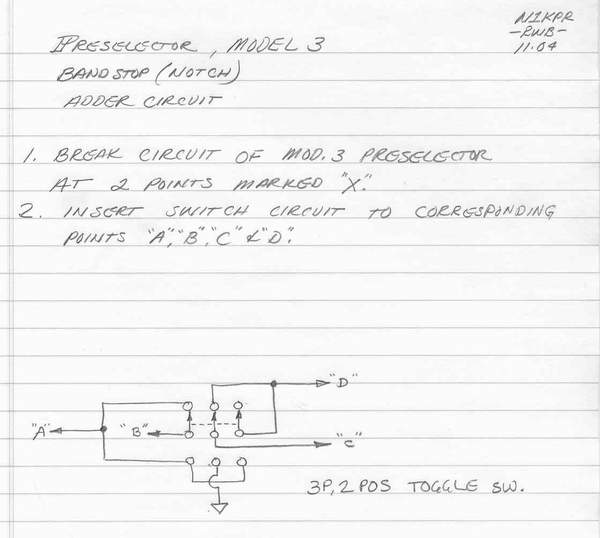 N1KPR
-RWB-
11.04
PRESELECTOR, MODEL 3
BANDSTOP (NOTCH)
ADDER CIRCUIT
1. BREAK CIRCUIT OF MOD. 3 PRESELECTOR
AT 2 POINTS MARKED "X".
2. INSERT SWITCH CIRCUIT TO CORRESPONDING
POINTS "A", "B", "C" & "D".
"D"
"A"
"B"
"C"
3P, 2 POS TOGGLE SW.